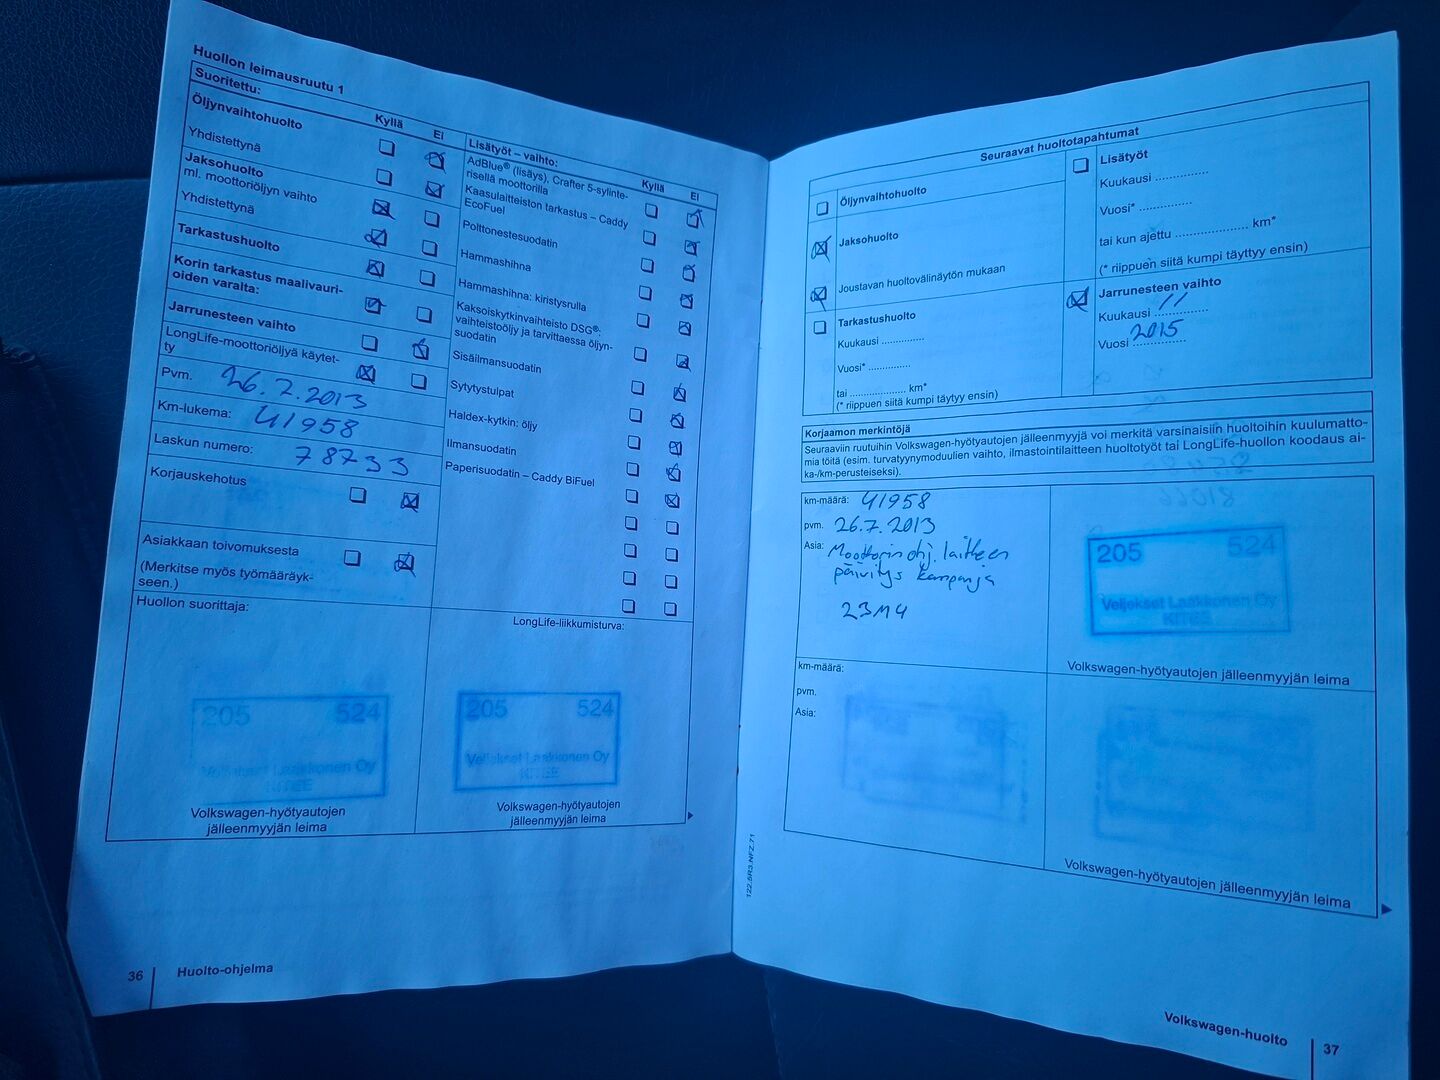 Huollon leimausruutu 1
Suoritettu:
Kyllä Ei
Öljynvaihtohuolto
Yhdistettynä
Jaksohuolto
ml. moottoriöljyn vaihto
Yhdistettynä
Tarkastushuolto
Korin tarkastus maalivauri-
oiden varalta:
Jarrunesteen vaihto
LongLife-moottoriöljyä käytet-
ty
Pvm. 26.7.2013
Km-lukema: 41958
Laskun numero: 78733
Korjauskehotus
Asiakkaan toivomuksesta
(Merkitse myös työmääräyk-
seen.)
Lisätyöt – vaihto:
Kyllä Ei
AdBlue® (lisäys), Crafter 5-sylinte-
risellä moottorilla
Kaasulaitteiston tarkastus – Caddy
EcoFuel
Polttonestesuodatin
Hammashihna
Hammashihna: kiristysrulla
Kaksoiskytkinvaihteisto DSG®:
vaihteistoöljy ja tarvittaessa öljyn-
suodatin
Sisäilmansuodatin
Sytytystulpat
Haldex-kytkin: öljy
Ilmansuodatin
Paperisuodatin – Caddy BiFuel
Huollon suorittaja:
205 524
Veljekset Laakkonen Oy
KITEE
Volkswagen-hyötyautojen
jälleenmyyjän leima
LongLife-liikkumisturva:
205 524
Veljekset Laakkonen Oy
KITEE
Volkswagen-hyötyautojen
jälleenmyyjän leima
36 Huolto-ohjelma
Seuraavat huoltotapahtumat
Öljynvaihtohuolto
Jaksohuolto
Joustavan huoltovälinäytön mukaan
Tarkastushuolto
Kuukausi ..............
Vuosi* ..............
tai .................. km*
(* riippuen siitä kumpi täytyy ensin)
Lisätyöt
Kuukausi ..............
Vuosi* ..............
tai kun ajettu .................... km*
(* riippuen siitä kumpi täyttyy ensin)
Jarrunesteen vaihto
Kuukausi 11
Vuosi 2015
Korjaamon merkintöjä
Seuraaviin ruutuihin Volkswagen-hyötyautojen jälleenmyyjä voi merkitä varsinaisiin huoltoihin kuulumatto-
mia töitä (esim. turvatyynymoduulien vaihto, ilmastointilaitteen huoltotyöt tai LongLife-huollon koodaus ai-
ka-/km-perusteiseksi).
km-määrä: 41958
pvm. 26.7.2013
Asia: Moottorin ohj. laitteen
päivitys kampanja
23M4
205 524
Veljekset Laakkonen Oy
KITEE
Volkswagen-hyötyautojen jälleenmyyjän leima
km-määrä:
pvm.
Asia:
Volkswagen-hyötyautojen jälleenmyyjän leima
122.5R3.NFZ.71
Volkswagen-huolto 37